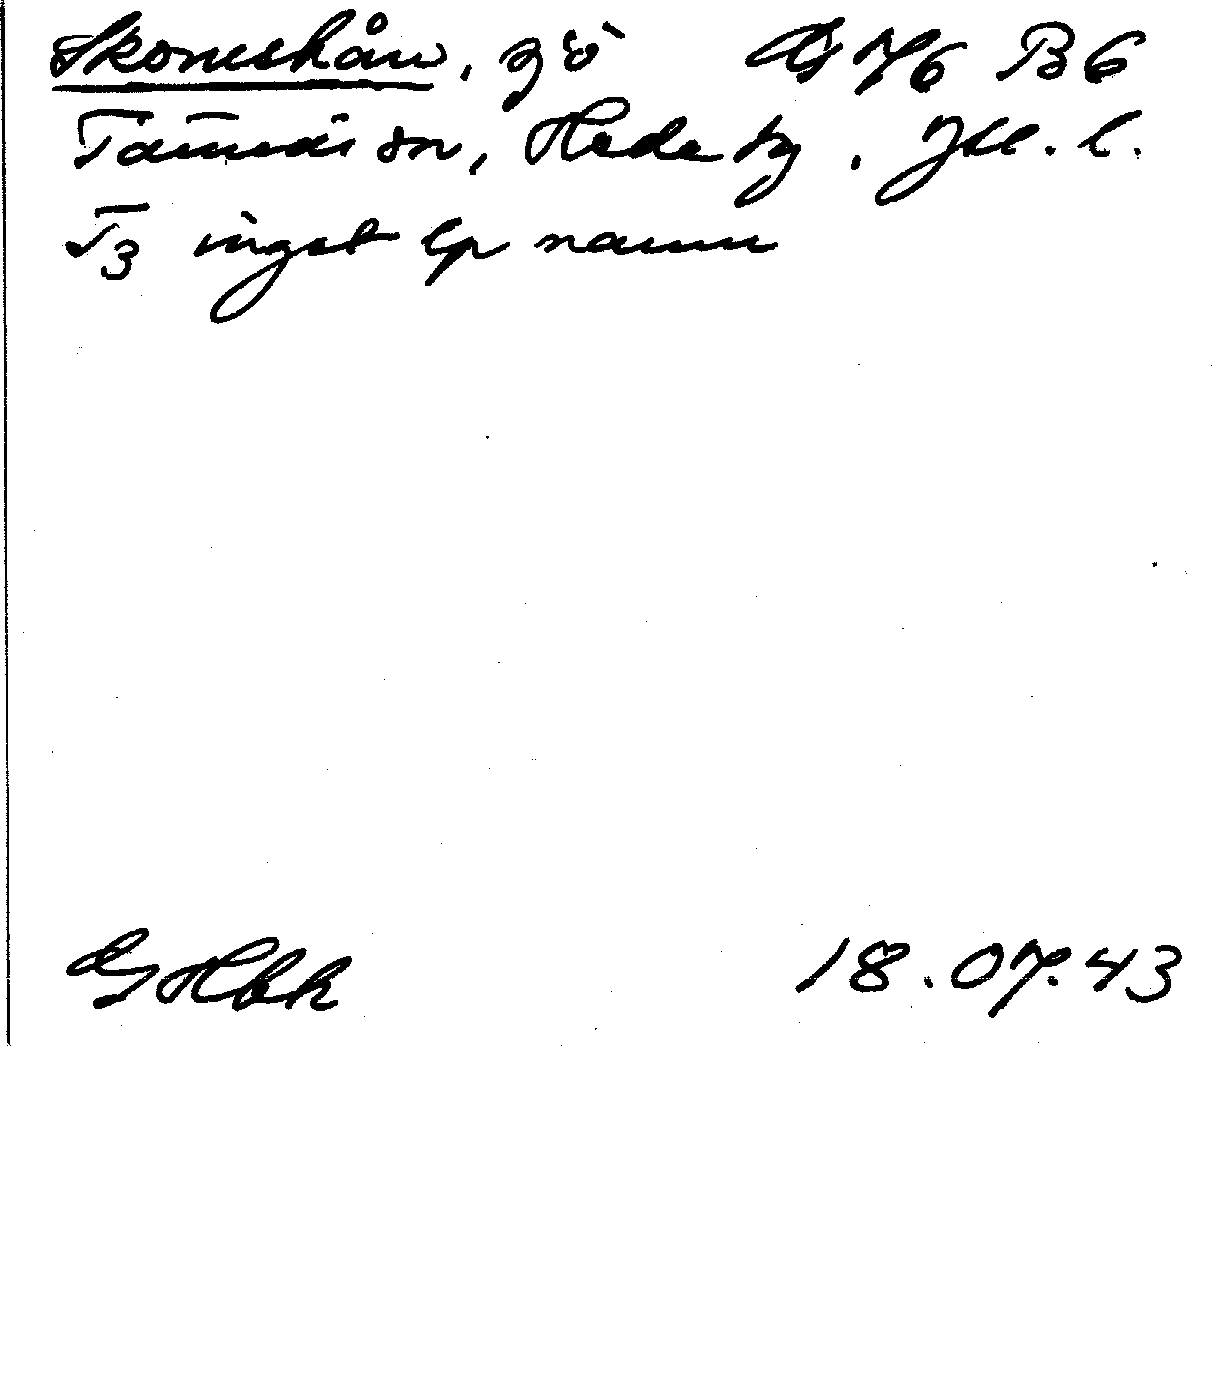 Skomeshån, gö G 76 B 6
Tännäs sn, Hede tg. Jtl. l.
T3 inget lp namn
GHbk 18.07.43